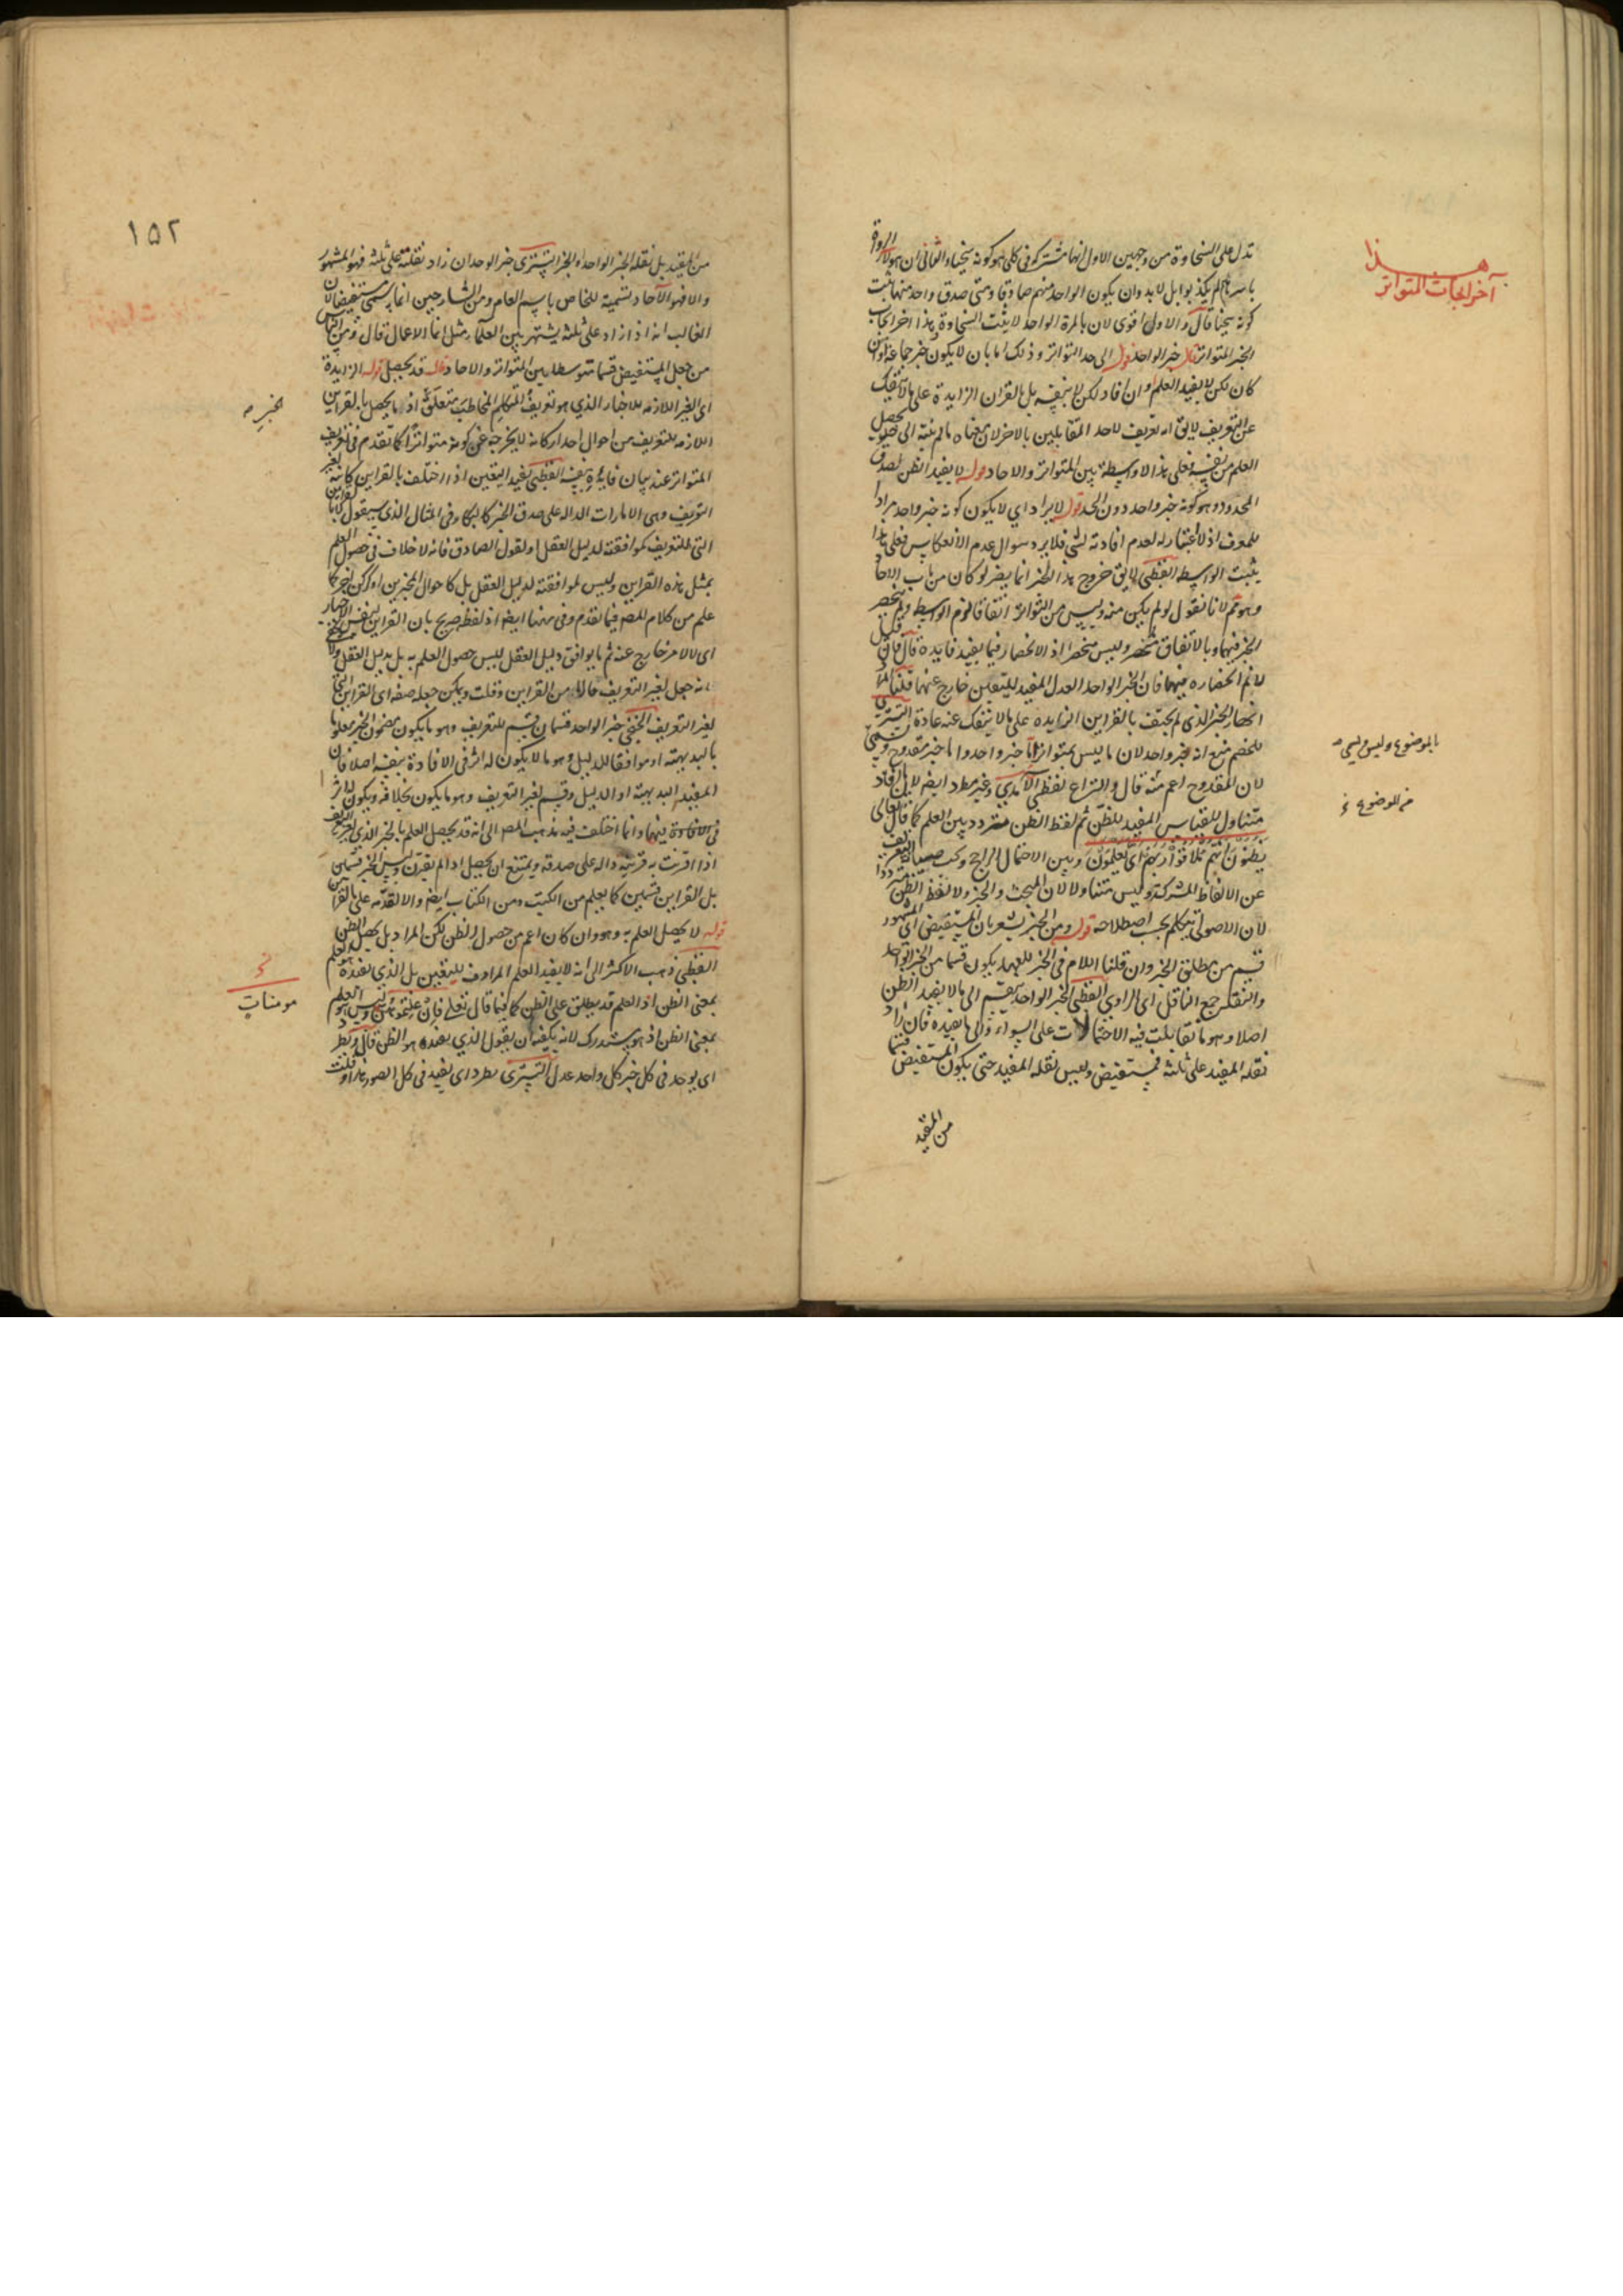 هذا
آخر ابحاث المتواتر
تدل على السخاوة من وجهين الاول انها مشتركة في كلي هو كونه سخيا والثاني ان هؤلاء الرواة
باسرهم لم يكذبوا بل لا بد وان يكون الواحد منهم صادقا ومتى صدق واحد منها ثبت
كونه سخيا قال والاول اقوى لان بالمرة الواحدة لا يثبت السخاوة هذا اخر ابحاث
الخبر المتواتر قال خبر الواحد قوله الى حد التواتر وذلك اما بان لا يكون خبر جماعة او ان
كان لكن لا يفيد العلم وان افاد لكن لا بنفسه بل بالقران الزايدة على ما لا ينفك
عن التعريف لا يق انه تعريف لاحد المتقابلين بالاخر لان معناه ما لم ينته الى حد يحصل
العلم من نفسه فعلى هذا لا وسطة بين المتواتر والاحاد قوله لا يفيد الظن لصدق
المحدود وهو كونه خبر واحد دون الحد قوله لا يراد اي لا يكون كونه خبر واحد مرادا
للمعرف اذ لا اعتبار له لعدم افادته لشي فلا يرد سوال عدم الانعكاس فعلى هذا
يثبت الواسطة القطبي لا يق خروج هذا الخبر انما يضر لو كان من باب الاحاد
وهو مم لانا نقول لو لم يكن منه وليس من التواتر اتفاقا لزم الواسطة ولم ينحصر
الخبر فيهما وبالاتفاق منحصر وليس منحصرا اذ الانحصار فيما يفيد فايدة قال فان قيل
لا نم انحصاره فيهما فان الخبر الواحد العدل المفيد لليقين خارج عنهما قلنا المراد
انحصار الخبر الذي لم يحتف بالقراين الزايدة على ما لا ينفك عنه عادة التستري
للخصم منع انه خبر واحد لان ما ليس بمتواتر اما خبر واحد واما خبر مقدوح ويسمى
بالموضوع وليس يسمى
لان المقدوح اعم منه قال والنزاع لفظي الآمدي وغير مطرد ايضا لان ما افاد
من الموضوع
متناول للقياس المفيد للظن ثم لفظ الظن متردد بين العلم كما قال تعالى
يظنون انهم ملاقوا ربهم اي يعلمون وبين الاحتمال الراجح ويجب صيانة التعريف
عن الالفاظ المشتركة وليس متناولا لان المبحث والخبر ولا لفظ الظن مترددا
لان الاصولي يتكلم بحسب اصطلاحه قوله ومن الخبر يشعر بان المستفيض اي المشهور
قسم من مطلق الخبر وان قلنا اللام في الخبر للعهد يكون قسما من الخبر الواحد
والنقلة جمع الناقل اي الراوي القطبي الخبر الواحد ينقسم الى ما لا يفيد الظن
اصلا وهو ما تقابلت فيه الاحتمالات على السواء والى ما يفيده فان زاد
نقله المفيد على ثلثة فمستفيض وليس نقله المفيد حتى يكون المستفيض قسما
من المفيد
١٥٢
من المفيد بل نقله الخبر الواحد او الخبر التستري خبر الواحد ان زاد نقلته على ثلثة فهو المشهور
والا فهو الآحاد تسمية للخاص باسم العام ومن الشارحين انما يسمى مستفيضا لان
الغالب انه اذا زاد على ثلثة يشتهر بين العلماء مثل انما الاعمال قال ومن الناس
من جعل المستفيض قسما متوسطا بين المتواتر والاحاد قال قد يحصل قوله الزايدة
اي الغير اللازمة للاخبار الذي هو تعريف المتكلم المخاطب متعلق اذ ما يحصل بالقراين
للخبر
اللازمة للتعريف من احوال احد اركانه لا يخرجه عن كونه متواترا كما تقدم في تعريف
المتواتر عند بيان فايدة بنفسه القطبي يفيد اليقين اذا اختلف بالقراين كانه لغير
التعريف وهي الامارات الدالة على صدق الخبر كالبكاء وفي المثال الذي سيقول
التي للتعريف كموافقته لدليل العقل او لقول الصادق فانه لا خلاف في حصول العلم
بمثل هذه القراين وليس لموافقته لدليل العقل بل كاحوال المخبرين او اركان اخر كما
علم من كلام المصه فيما تقدم وفي مهنا ايضا اذ لفظ صريح بان القراين لنفس الاخبار
اي لا لامر خارج عنه ثم ما يوافق دليل العقل ليس حصول العلم به بل بدليل العقل
انه جعل لغير التعريف حالا من القراين وقلت ويمكن جعله صفة اي القراين التي
لغير التعريف الخنجي خبر الواحد قسمان قسم للتعريف وهو ما يكون مضمون الخبر معلوما
بالبديهة او موافقا للدليل وهو ما لا يكون له اثر في الافادة بنفسه اصلا فان
المفيد البديهة او الدليل وقسم لغير التعريف وهو ما يكون بخلافه ويكون له اثر
في الافادة فيهما وانما اختلف فيه فذهب المصه الى انه قد يحصل العلم بالخبر الذي لغير التعريف
اذا اقترنت به قرينة دالة على صدقه ويمتنع ان يحصل اذا لم يقترن وليس الخبر قسمين
بل القراين قسمين كما يعلم من الكتب ومن الكتاب ايضا والا لقدمه على القراين
قوله لا يحصل العلم به وهو وان كان اعم من حصول الظن لكن المراد بل يحصل الظن
القطبي ذهب الاكثر الى انه لا يفيد العلم المرادف لليقين بل الذي يفيده هو العلم
بمعنى الظن اذ العلم قد يطلق على الظن كما فيما قال تعالى فان علمتموهن وليس العلم
مومنات
بمعنى الظن اذ هو مستدرك لانه يكفيه ان يقول الذي يفيده هو الظن قال ويطرد
اي يوجد في كل خبر كل واحد عدل التستري يطرد اي يفيد في كل الصور